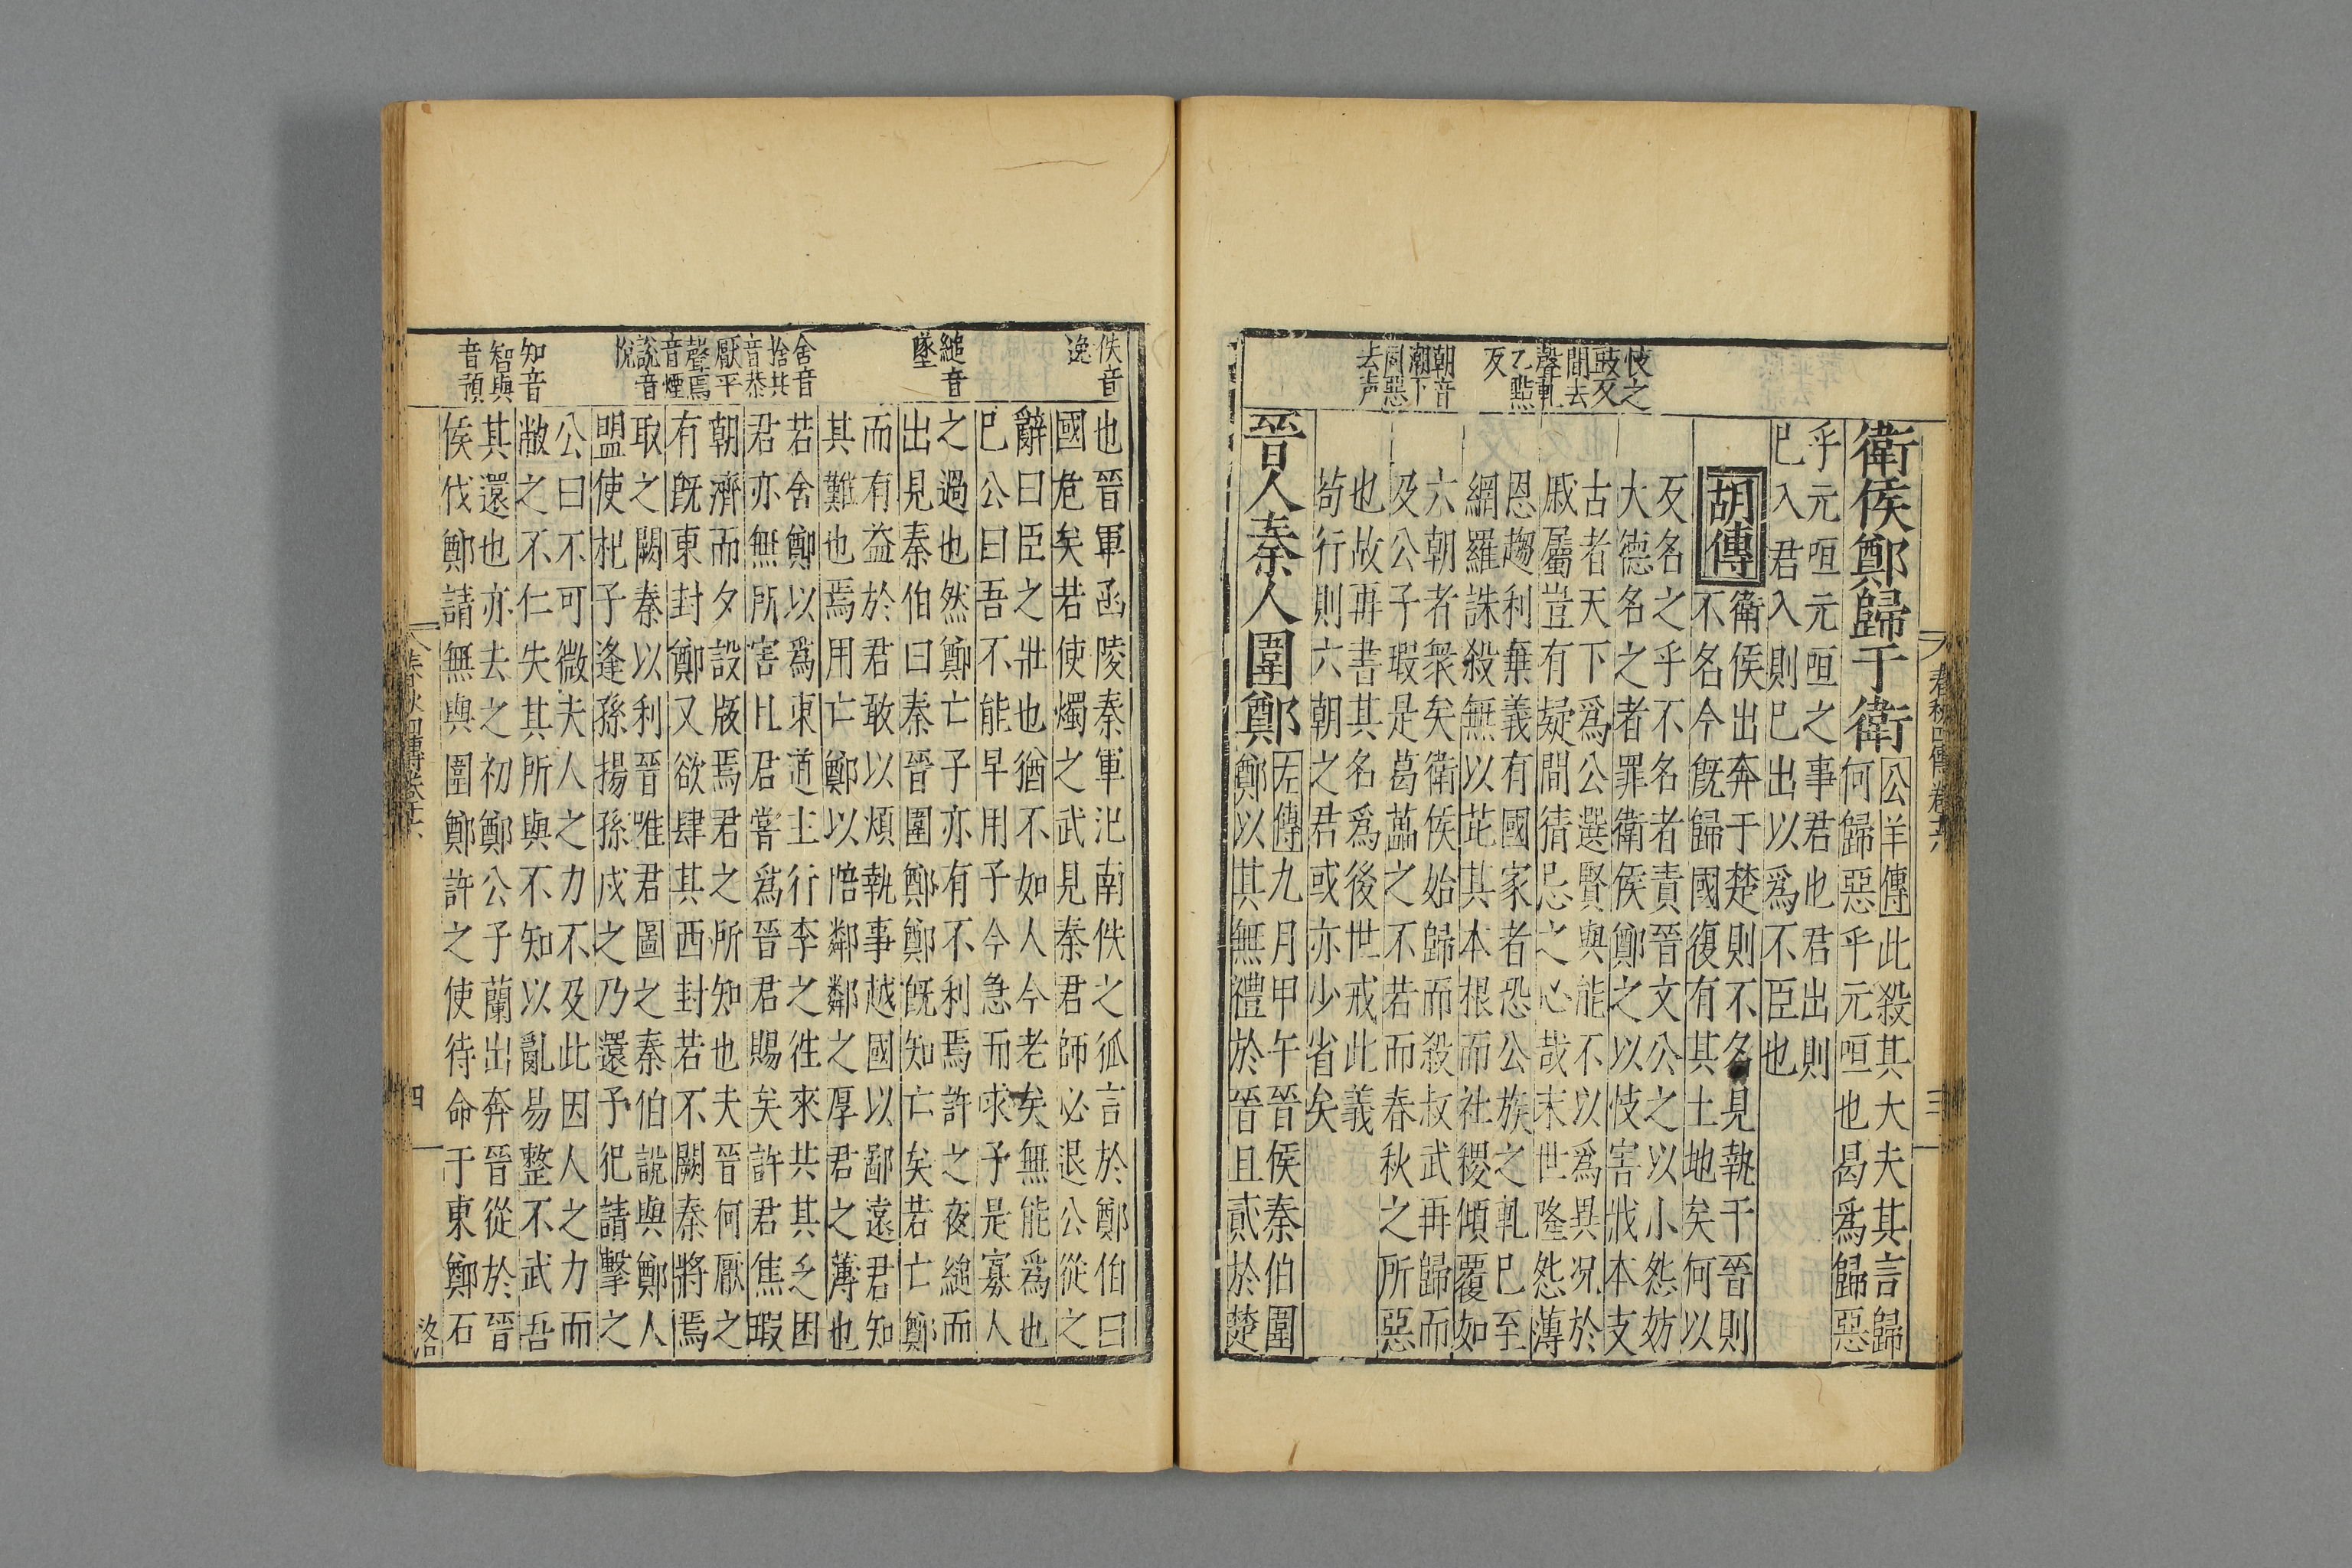 春秋四傳卷十六
三
忮之
豉反
間去
聲軋
乙黠
反
朝音
潮下
同惡
去声
衛侯鄭歸于衛
公羊傳此殺其大夫其言歸
何歸惡乎元咺也曷爲歸惡
乎元咺元咺之事君也君出則
已入君入則已出以爲不臣也
胡傳
衛侯出奔于楚則不名見執于晉則
不名今旣歸國復有其土地矣何以
反名之乎不名者責晉文公之以小怨妨
大德名之者罪衛侯鄭之以忮害戕本支
古者天下爲公選賢與能不以爲異况於
戚屬豈有疑間猜忌之心哉末世隆怨薄
恩趨利棄義有國家者恐公族之軋已至
網羅誅殺無以芘其本根而社稷傾覆如
六朝者衆矣衛侯始歸而殺叔武再歸而
及公子瑕是葛藟之不若而春秋之所惡
也故再書其名爲後世戒此義
苟行則六朝之君或亦少省矣
晉人秦人圍鄭
左傳九月甲午晉侯秦伯圍
鄭以其無禮於晉且貳於楚
佚音
逸
縋音
墜
舍音
捨共
音恭
厭平
聲焉
音煙
說音
悅
知音
智與
音預
也晉軍函陵秦軍氾南佚之狐言於鄭伯曰
國危矣若使燭之武見秦君師必退公從之
辭曰臣之壯也猶不如人今老矣無能爲也
已公曰吾不能早用子今急而求子是寡人
之過也然鄭亡子亦有不利焉許之夜縋而
出見秦伯曰秦晉圍鄭鄭旣知亡矣若亡鄭
而有益於君敢以煩執事越國以鄙遠君知
其難也焉用亡鄭以陪鄰鄰之厚君之薄也
若舍鄭以爲東道主行李之往來共其乏困
君亦無所害且君嘗爲晉君賜矣許君焦瑕
朝濟而夕設版焉君之所知也夫晉何厭之
有旣東封鄭又欲肆其西封若不闕秦將焉
取之闕秦以利晉唯君圖之秦伯說與鄭人
盟使杞子逢孫揚孫戍之乃還子犯請擊之
公曰不可微夫人之力不及此因人之力而
敝之不仁失其所與不知以亂易整不武吾
其還也亦去之初鄭公子蘭出奔晉從於晉
侯伐鄭請無與圍鄭許之使待命于東鄭石
春秋四傳卷十六
四
洛